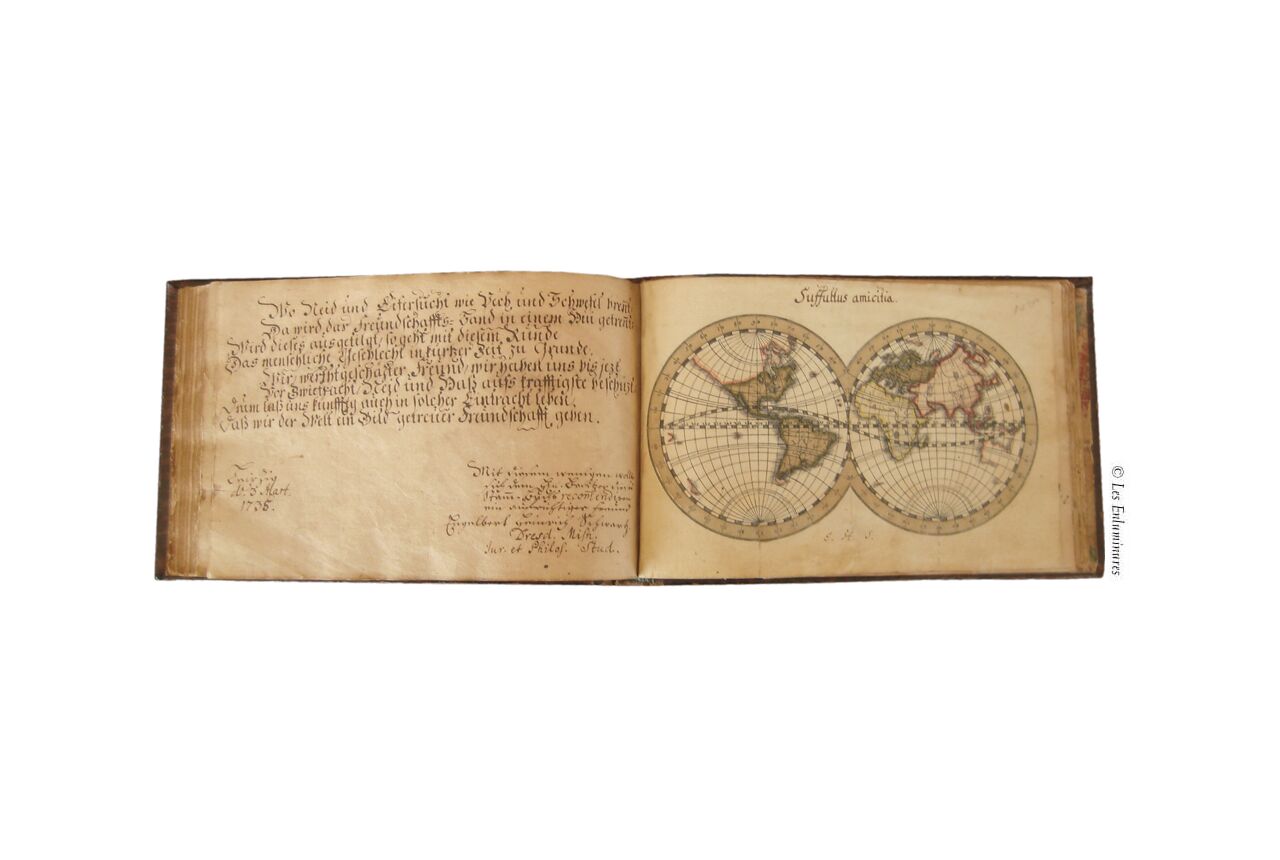 Wo Neid und Eifersucht wie Pech und Schwefel brennt
Da wird das Freundschaffts-Band in einem Nun getrennt
Wird dieses ausgetilgt, so geht mit diesem Bunde
Das menschliche Geschlecht in kurtzer Zeit zu Grunde.
Wir, werthgeschäzter Freund, wir haben uns bis jezt
Vor Zwietracht, Neid und Haß aufs kräfftigste beschüzt
Drum laß uns künfftig auch in solcher Eintracht leben,
Daß wir der Welt ein Bild getreuer Freundschafft geben.
Leipzig
d. 3 Mart.
1738.
Mit diesem wenigen
Stam-Buchs recommendiren
ein aufrichtiger Freund
Engelbert Heinrich Schwartz
Dresd. Misn.
Jur. et Philos. Stud.
Suffultus amicitia.
E. H. S.
© Les Enluminures